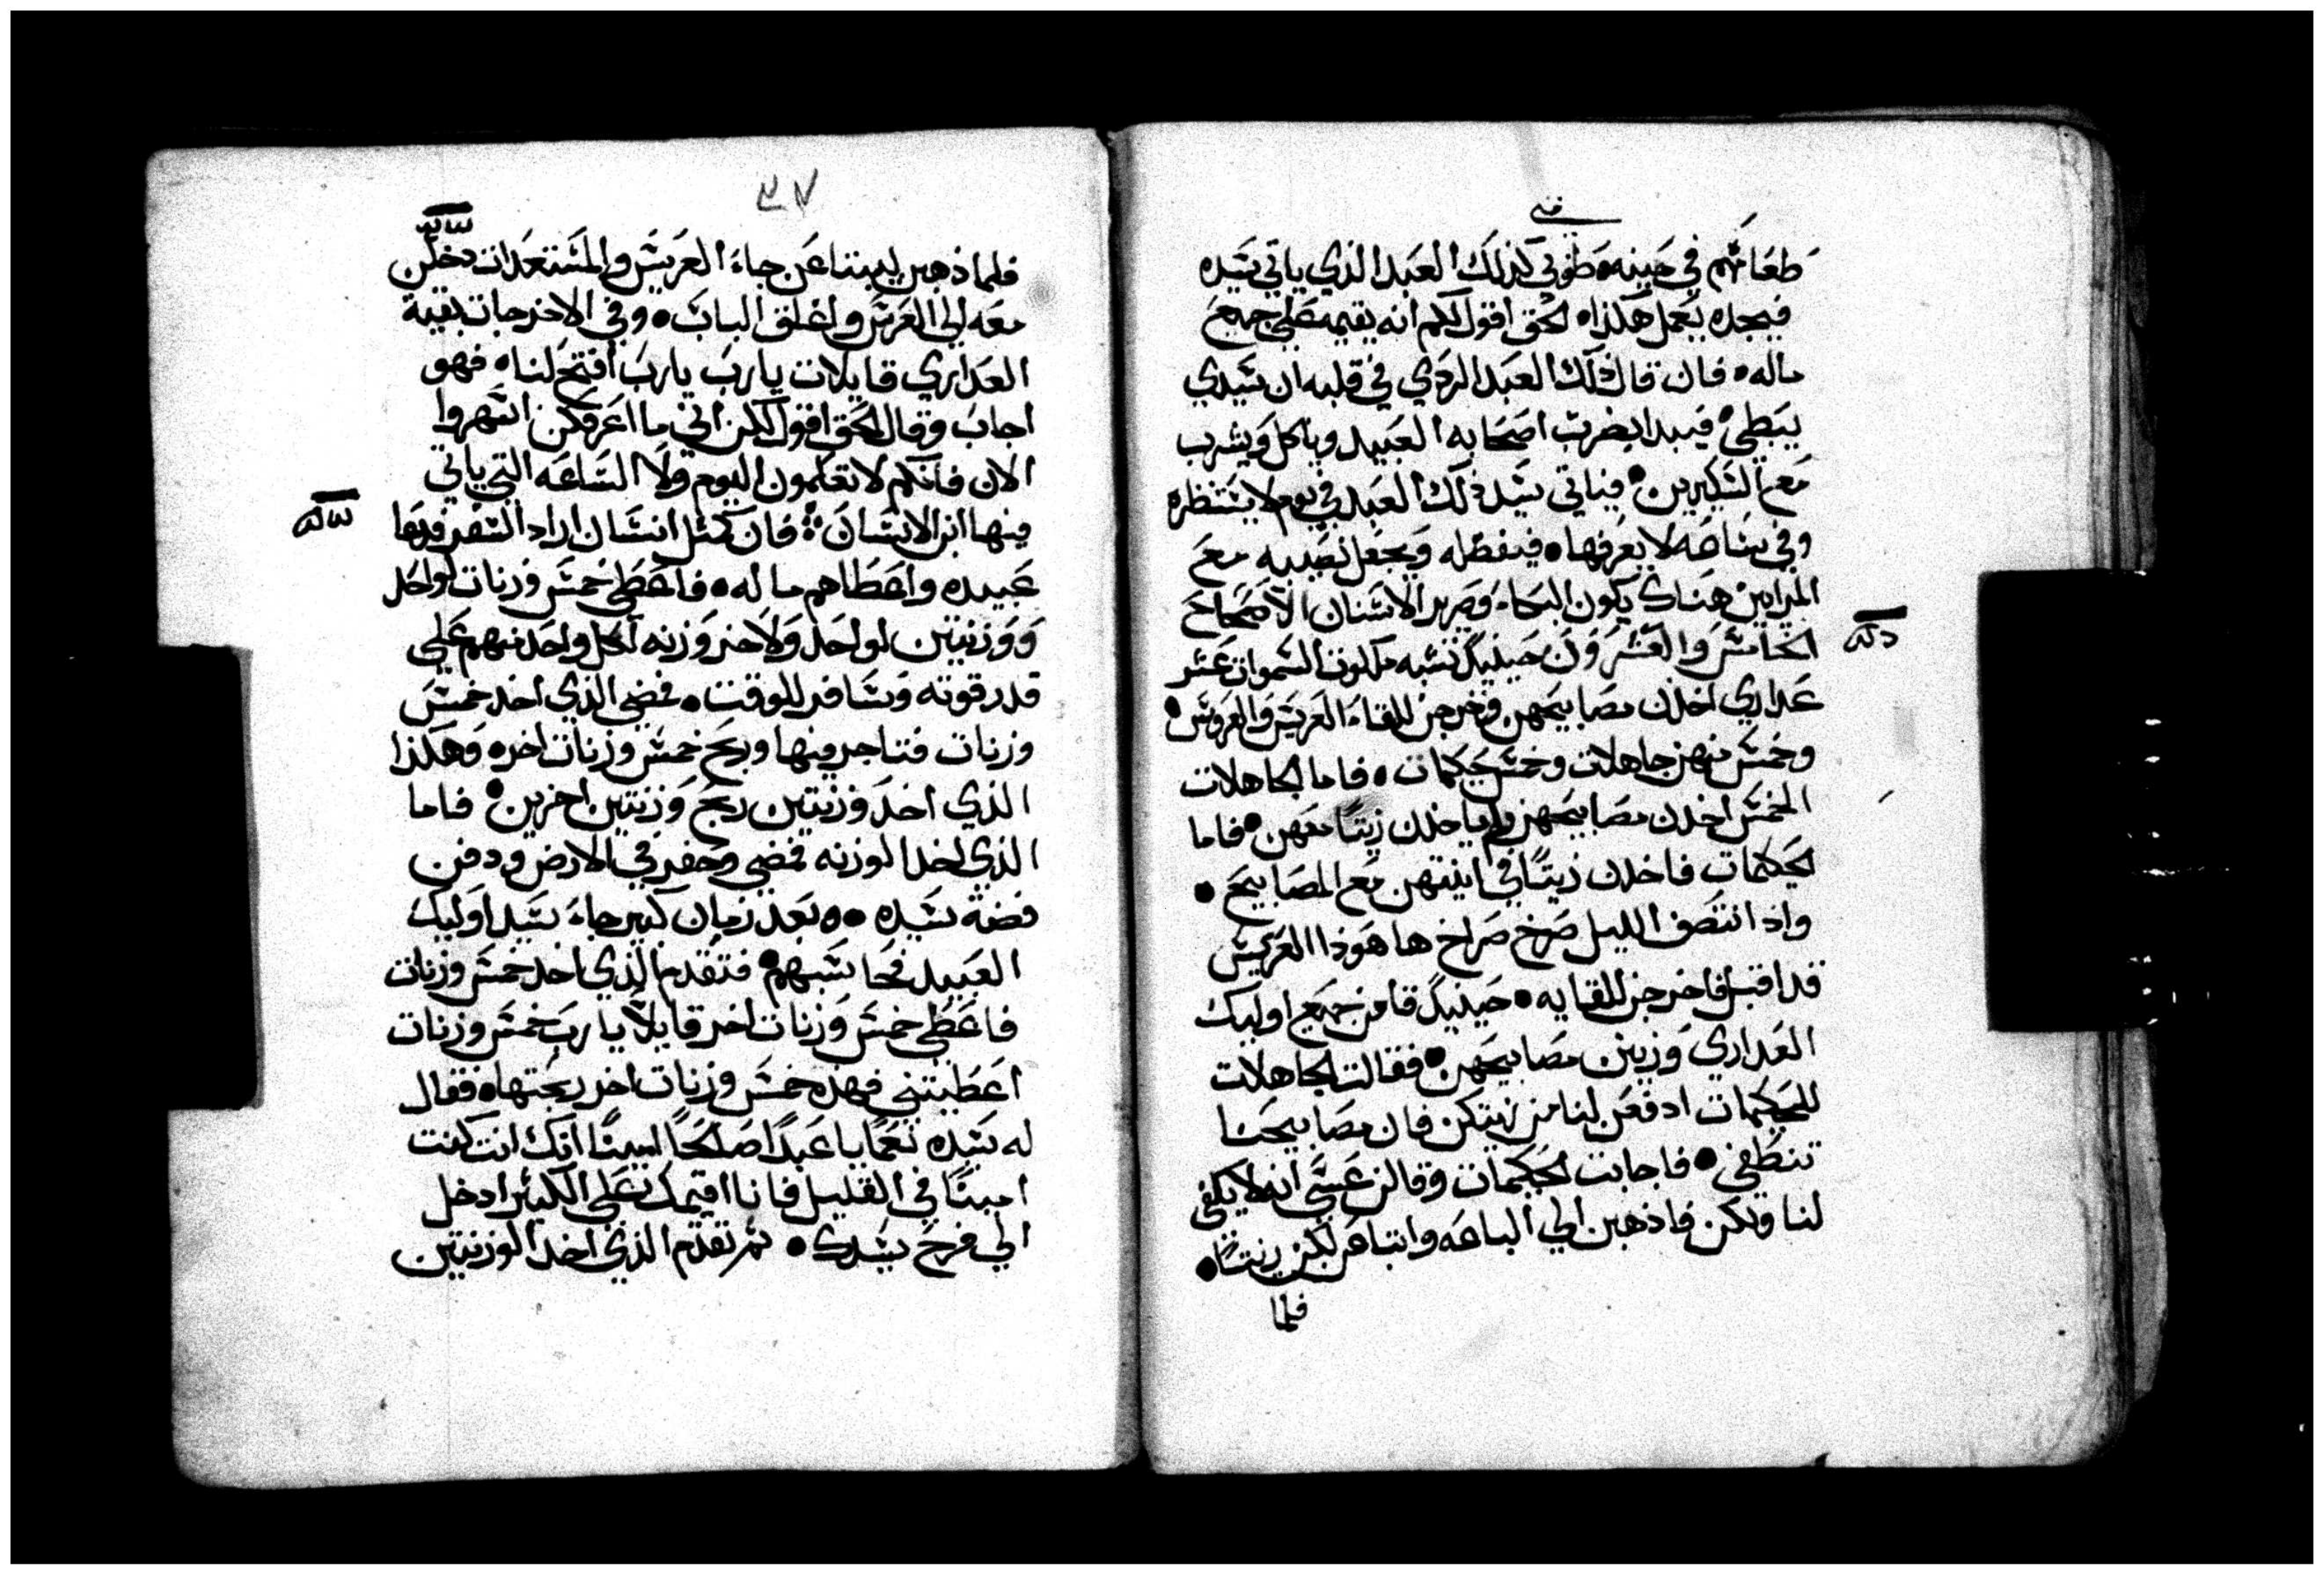 طعامهم في حينه وطوبي لذلك العبد الذي ياتي سيده
فيجده يعمل هكذا ه الحق اقول لكم انه يقيمه علي جميع
ماله ه فان قال ذلك العبد الردي في قلبه ان سيدي
يبطي ه فيبدا بضرب اصحابه العبيد وياكل ويشرب
مع السكيرين ه فياتي سيد ذلك العبد في يوم لا ينتظره
وفي ساعه لا يعرفها ه فيفصله ويجعل نصيبه مع
المرايين هناك يكون البكاء وصرير الاسنان الاصحاح
الخامس والعشرون حينيذ تشبه ملكوت السموات عشر
عداري اخدن مصابيحهن وخرجن للقاء العريس والعروس ه
وخمس منهن جاهلات وخمس حكيمات ه فاما الجاهلات
الخمس اخدن مصابيحهن ولم ياخدن زيتًا معهن ه فاما
الحكيمات فاخدن زيتًا في انيتهن مع المصابيح ه
واذا انتصف الليل صرخ صراخ ها هوذا العريس
قد اقبل فاخرجن للقايه ه حينيذ قامن جميع اوليك
العداري وزينن مصابيحهن ه فقالت الجاهلات
للحكيمات ادفعن لنا من زيتكن فان مصابيحنا
تنطفي ه فاجابت الحكيمات وقالن عسي انه لا يكفي
لنا ولكن فاذهبن الي الباعه وابتاعن لكن زيتًا ه
فلما
٣٧
فلما ذهبن ليبتاعن جاء العريس والمستعدات دخلن
معه الي العرس واغلق الباب ه وفي الاخر جات بقية
العداري قايلات يارب يارب افتح لنا ه فهو
اجاب وقال الحق اقول لكن اني ما اعرفكن اسهروا
الان فانكم لا تعلمون اليوم ولا الساعه التي ياتي
فيها ابن الانسان ه فان كمثل انسان اراد السفر فدعا
عبيده واعطاهم ماله ه فاعطي خمس وزنات لواحد
ووزنتين لواحد ولاخر وزنه لكل واحد منهم علي
قدر قوته وسافر للوقت ه فمضي الذي اخد خمس
وزنات فتاجر فيها وربح خمس وزنات اخر ه وهكذا
الذي اخد وزنتين ربح وزنتين اخرين ه فاما
الذي اخد الوزنه فمضي وحفر في الارض ودفن
فضة سيده ه وبعد زمان كبير جاء سيد اوليك
العبيد فحاسبهم ه فتقدم الذي اخد خمس وزنات
فاعطي خمس وزنات اخر قايلاً يارب خمس وزنات
اعطيتني فهذه خمس وزنات اخر ربحتها ه فقال
له سيده نعمًا يا عبدًا صالحًا امينًا انك انت كنت
امينًا في القليل فانا اقيمك علي الكثير ادخل
الي فرح سيدك ه ثم تقدم الذي اخد الوزنتين